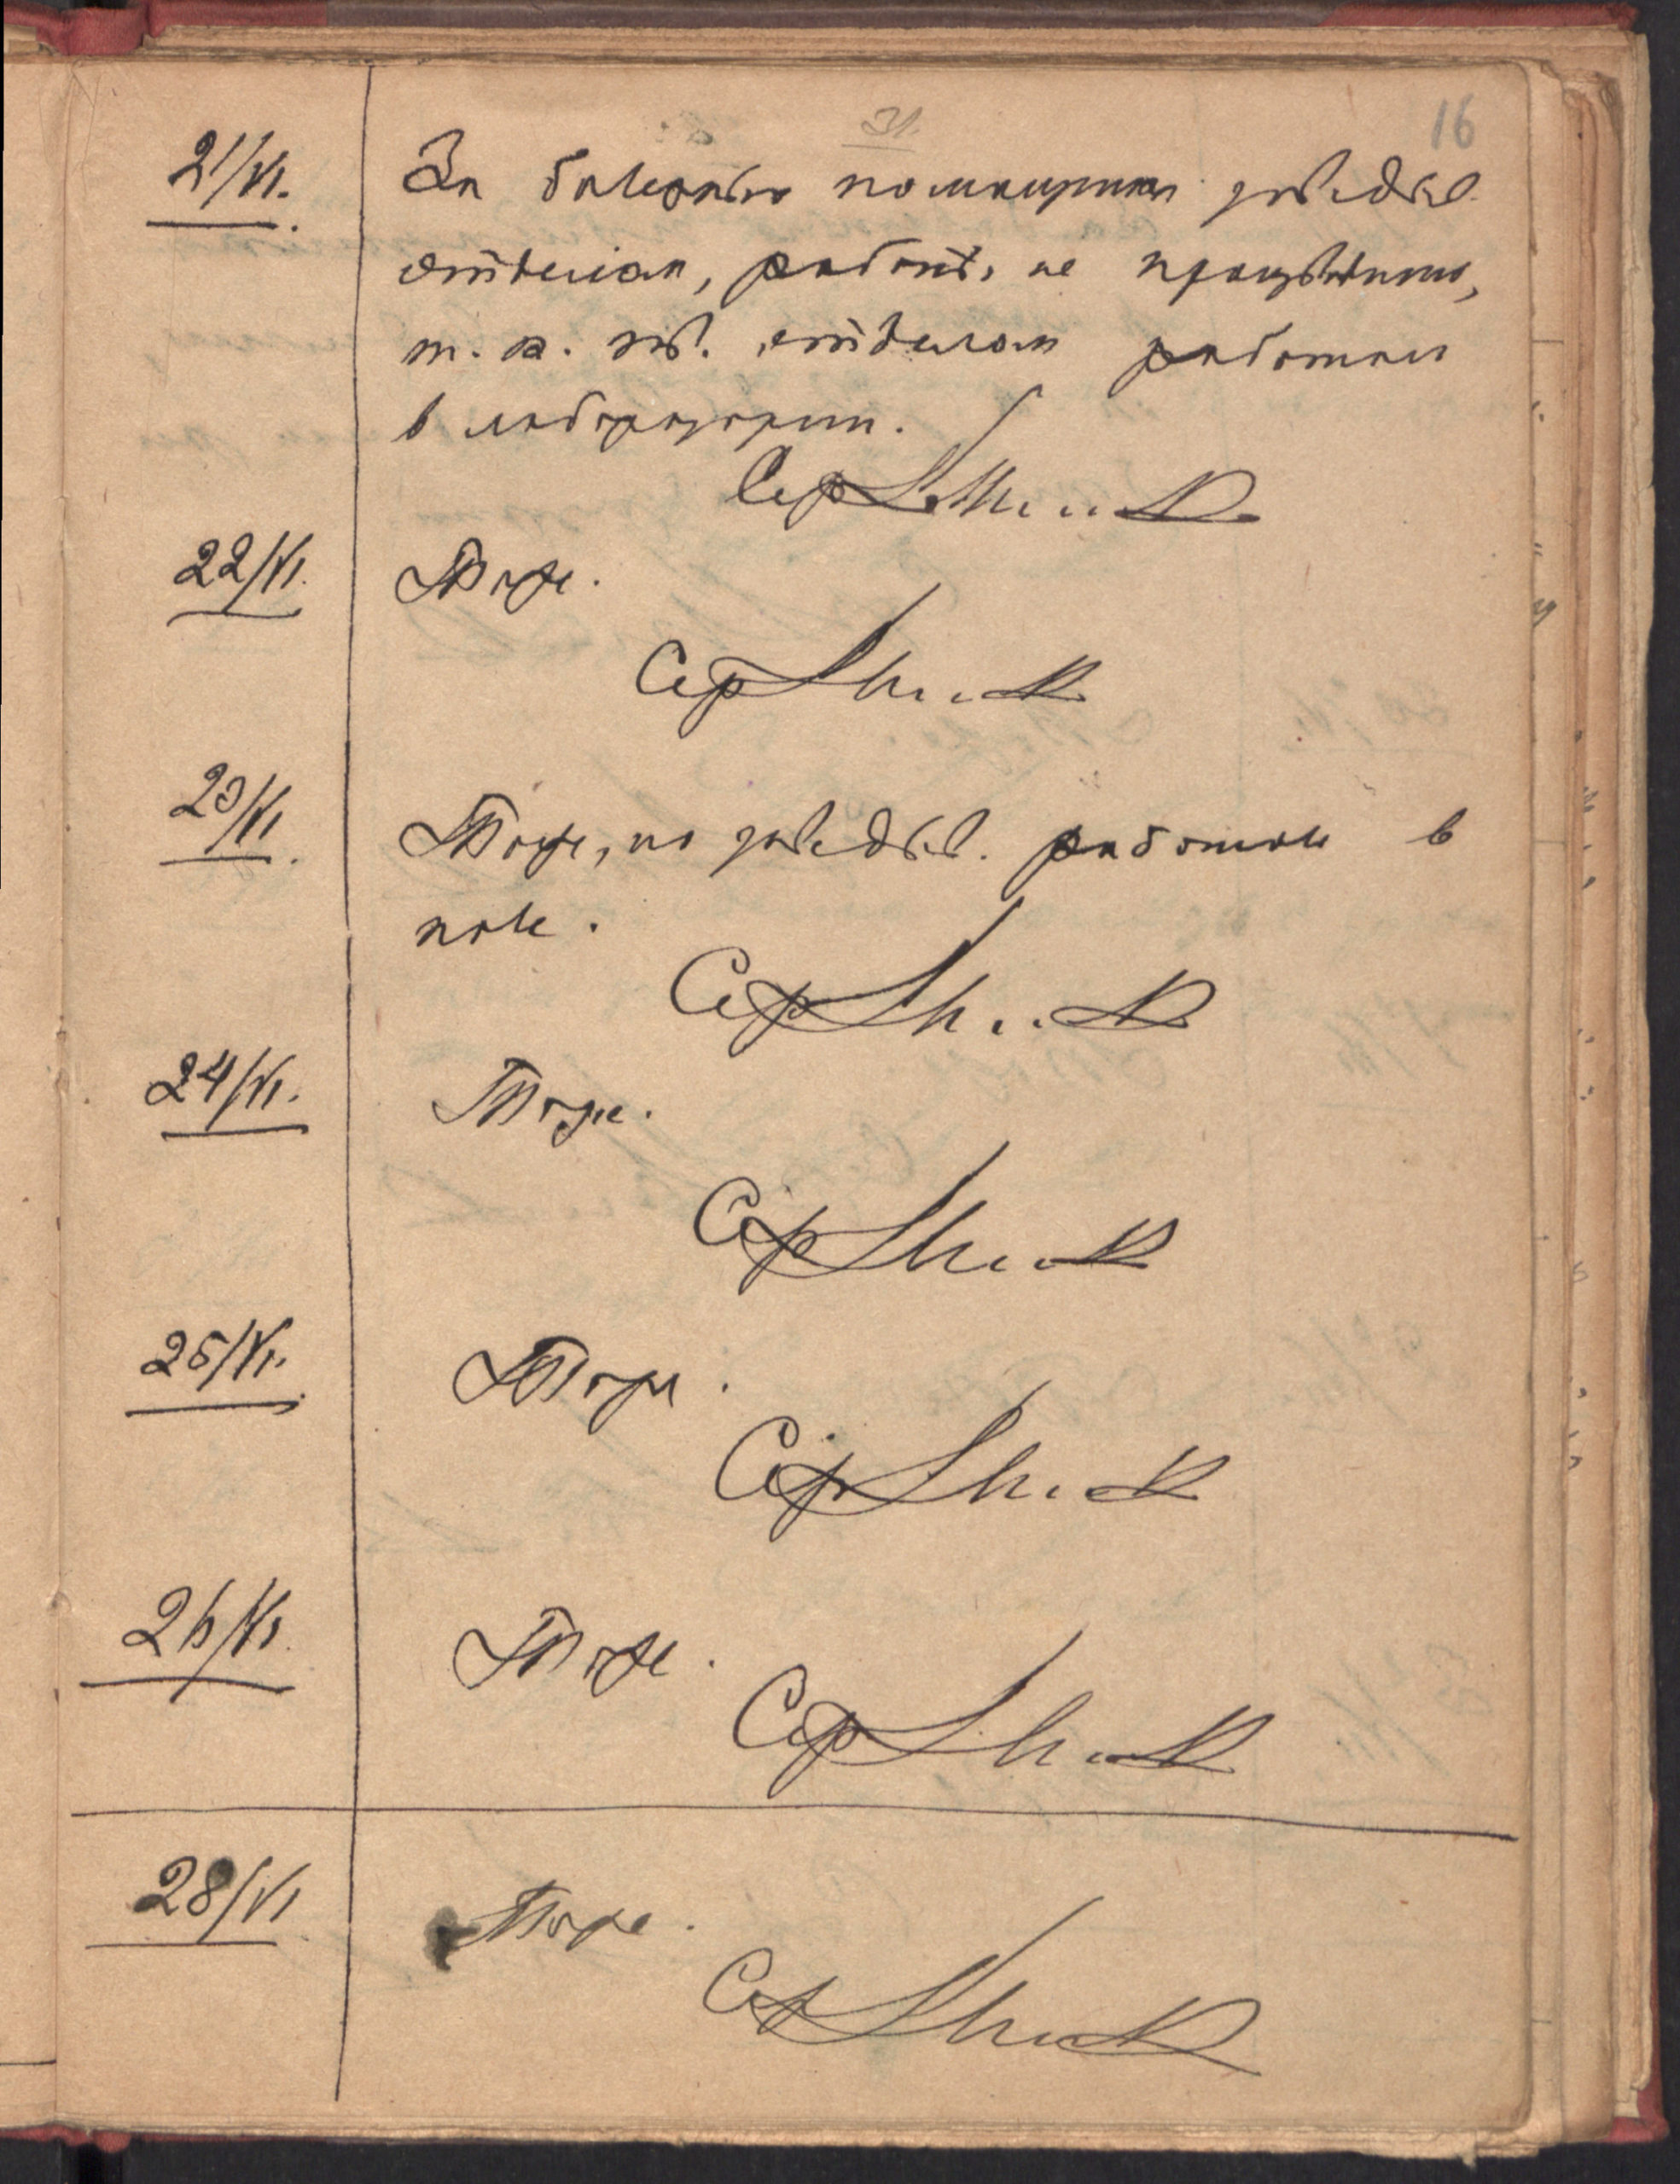 31.
16
21/VI.
За болезнью помощника заведыв.
отделом, работъ не производилось,
т. к. зав. отделом работал
в лаборатории.
22/VI.
Тоже.
23/VI.
Тоже, но заведыв. работал в
поле.
24/VI.
Тоже.
25/VI.
Тоже.
26/VI.
Тоже.
28/VI
Тоже.